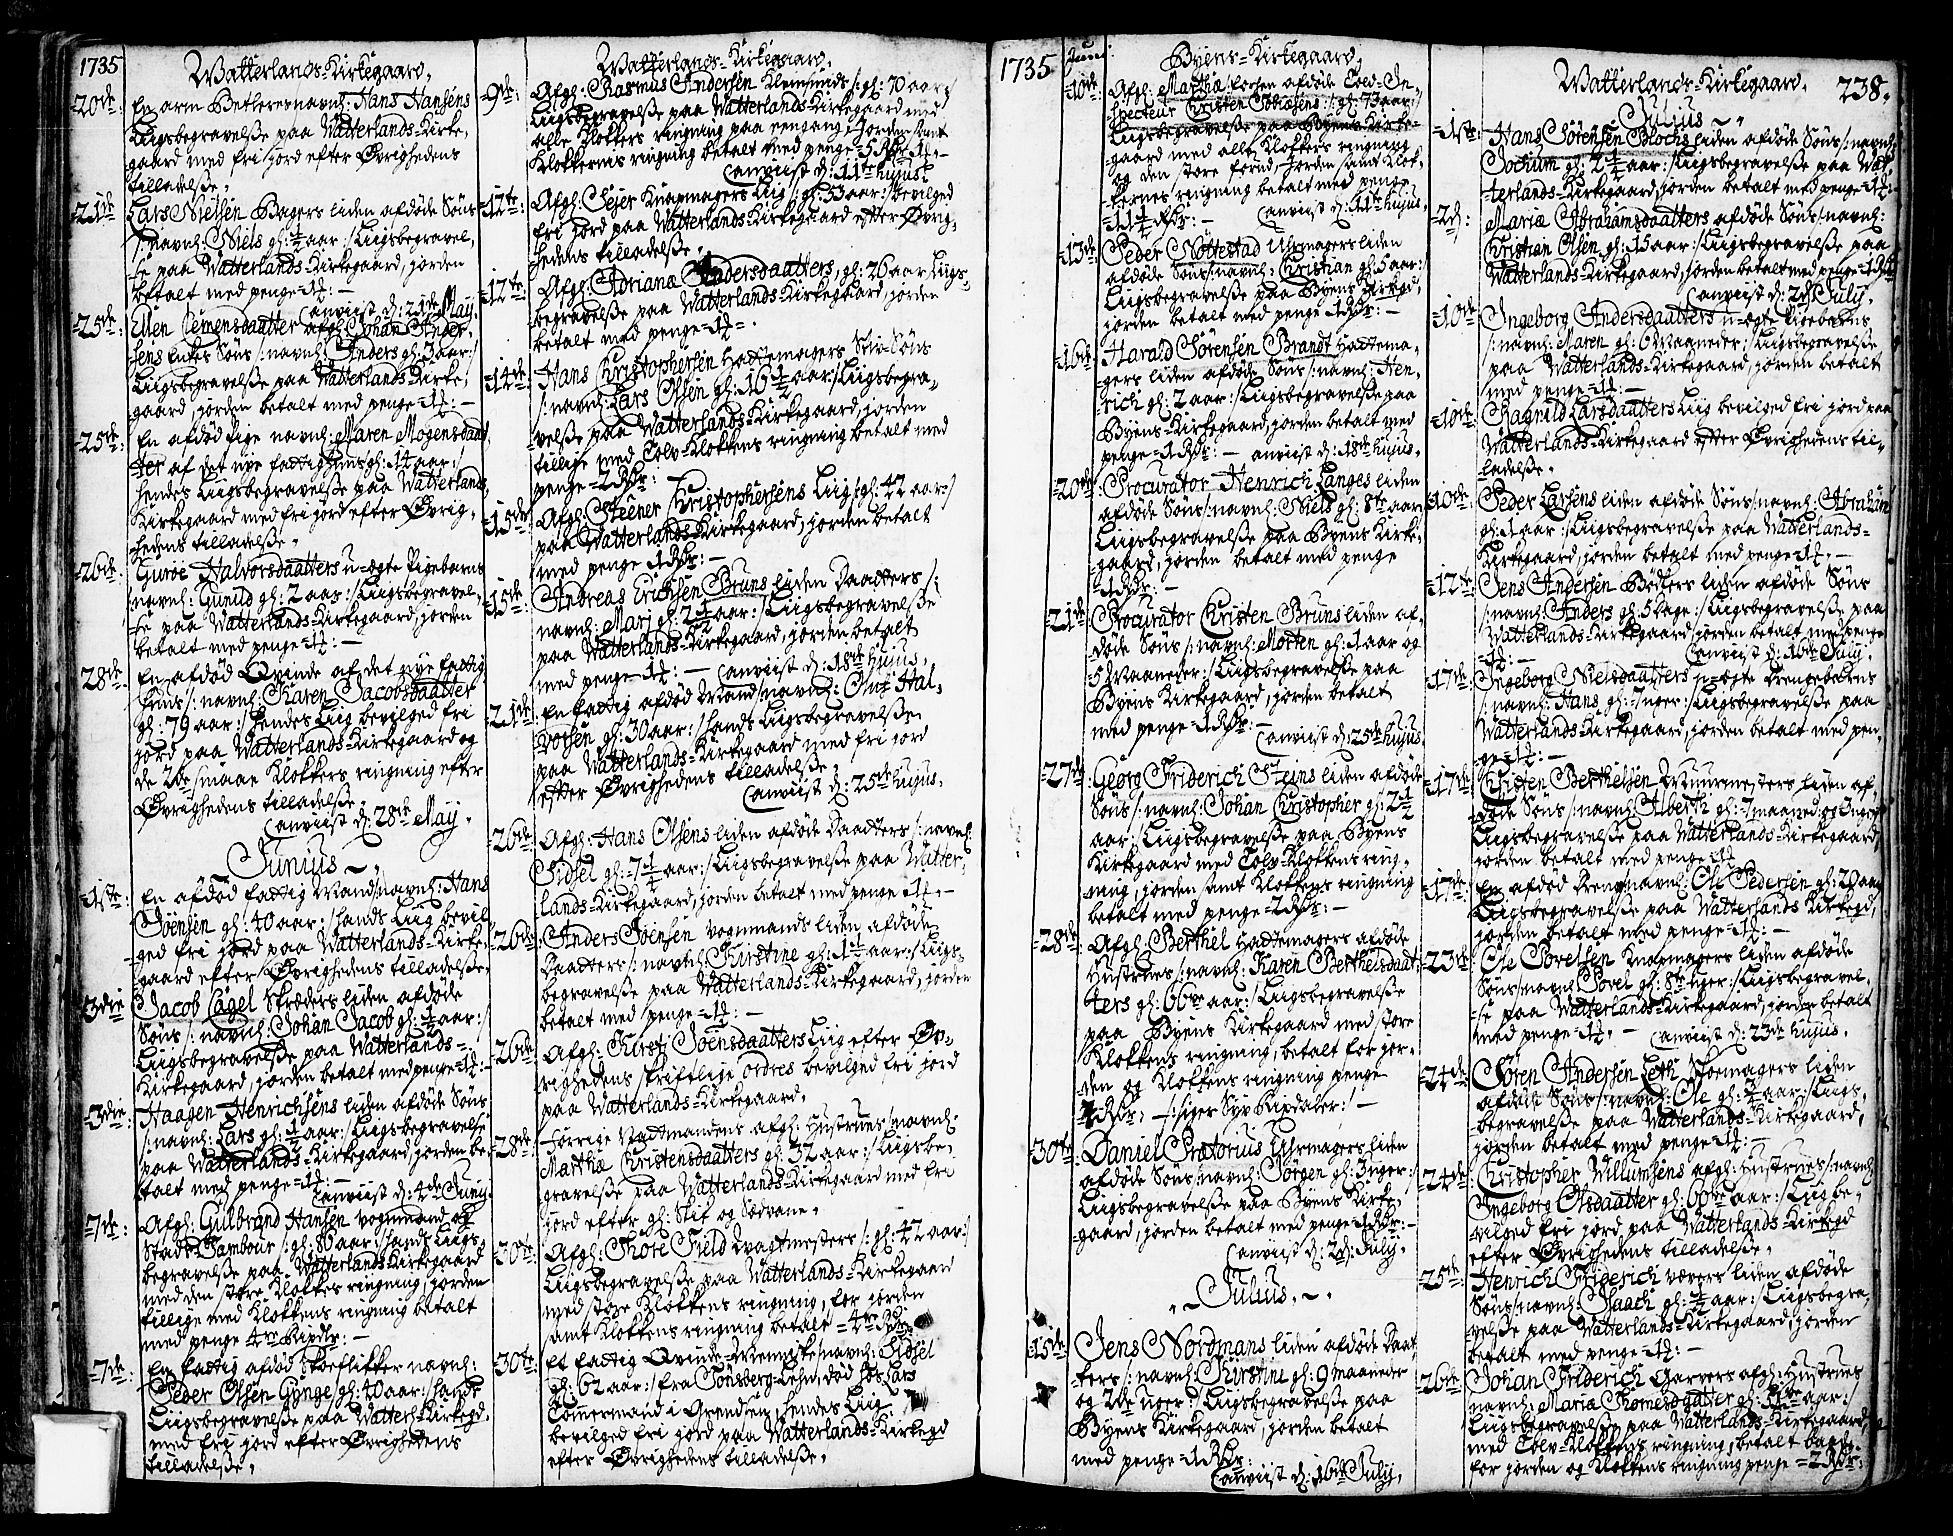 1735
Watterlands-Kirkegaard.
20de: En arm Betleres navnl: Hans Hansens
Liigsbegravelse paa Watterlands-Kirke-
gaard med fri jord efter Øvrighedens
tilladelse.
21de Lars Nielsen Bagers liden afdøde Søns
/:navnl: Niels gl: ½ aar:/ Liigsbegravel,
se paa Watterlands-Kirkegaard, jorden
betalt med penge =1½:—
Anviist d: 21de May.
25de: Ellen Clemensdaatter afgl: Johan Anders
sens Enkes Søns /:navnl: Anders gl: 3 aar:/
Liigsbegravelse paa Watterlands-Kirke,
gaard, jorden betalt med penge =1½:—
25de: En afdød Pige navnl: Maren Mogensdaat
ter af det nye fattighuus gl: 14 aar:/
hendes Liigsbegravelse paa Watterlands
Kirkegaard med fri jord efter Øvrig,
hedens tilladelse.
26de: Guroe Halvorsdaatters u-ægte Pigebarns
/:navnl: Gunild gl: 2 aar:/ Liigsbegravel,
se paa Watterlands-Kirkegaard, jorden
betalt med penge =1½:—
28de: En afdød Qvinde af det nye fattig
huus /: navnl: Karen Jacobsdaatter
gl: 79 aar:/ hendes Liig bevilged fri
jord paa Watterlands-Kirkegaard og
de 2de smaae Klokkers ringning efter
Øvrighedens tilladelse.
Anviist d: 28de May.
Junius
1ste: En afdød fattig Mand /:navnl: Hans
Joensen gl: 40 aar:/ hands Liig bevil
ged fri jord paa Watterlands-Kirke,
gaard efter Øvrighedens tilladelse.
3die Jacob Cagel Skræders liden afdøde
Søns /: navnl: Johan Jacob gl: ½ aar:/
Liigsbegravelse paa Watterlands-
Kirkegaard, jorden betalt med penge =1½:—
3die: Haagen Henrichsens liden afdøde Søns
/:navnl: Lars gl: ½ aar:/ Liigsbegravelse
paa Watterlands-Kirkegaard, jorden be-
talt med penge =1½:—
Anviist d: 4de Junij.
7de: Afgl: Gulbrand Hansen vognmand og
Stads-Tambour /: gl: 80 aar:/ hands Liigs,
begravelse paa Watterlands-Kirkegaard
med den store Klokkes ringning, jorden
tillige med Klokkens ringning betalt
med penge 4re Rixdlr:—
7de: En fattig afdød Skoeflikker navnl:
Peder Olsen Gynge /gl: 40 aar:/ hands
Liigsbegravelse paa Watterl:-Kirkegd.
med fri jord efter Øvrighedens
tilladelse.
Watterlands-Kirkegaard.
9de: Afgl: Rasmus Andersen Kleinsmids /: gl: 70 aar:/
Liigsbegravelse paa Watterlands-Kirkegaard med
alle Klokkers ringning paa eengang, Jorden samt
Klokkernis ringning betalt med penge =5 Rdr 1½:—
Anviist d: 11te hujus.
12te: Afgl: Sejer Knapmagers Liig /: gl: 53 aar:/ bevilged
fri jord paa Watterlands-Kirkegaard efter Øvrig,
hedens tilladelse.
12te: Afgl: Adriana Andersdaatters, gl: 26 aar Liigs-
begravelse paa Watterlands-Kirkegaard, jorden
betalt med penge =1½:—
14de: Hans Christophersen Hattemagers Stiv-Søns
/:navnl: Lars Olsen gl: 16½ aar:/ Liigsbegra-
velse paa Watterlands-Kirkegaard, jorden
tillige med Tolv-Klokkens ringning betalt med
penge =2 Rdr:—
15de: Afgl: Steener Christophersens Liig /:gl: 42 aar:/
paa Watterlands-Kirkegaard, jorden betalt
med penge 1 Rdr:—
15de: Andreas Erichsen Bruns liden Daatters /:
navnl: Mari gl: 2½ aar:/ Liigsbegravelse
paa Watterlands-Kirkegaard, jorden betalt
med penge =1½:— Anviist d: 18de hujus.
21de: En fattig afdød Mand /:navnl: Oluf Hal,
vorsen gl: 30 aar:/ hands Liigsbegravelse
paa Watterlands-Kirkegaard med fri jord
efter Øvrighedens tilladelse.
Anviist d: 25de hujus.
26de: Afgl: Hans Olsens liden afdøde Daatters /:navnl:
Sidsel gl: 7½ aar:/ Liigsbegravelse paa Watter,
lands-Kirkegaard, jorden betalt med penge =1½:—
26de: Anders Joensen vognmands liden afdøde
Daatters /:navnl: Kirstine gl: 1½ aar:/ Liigs-
begravelse paa Watterlands-Kirkegaard, jorden
betalt med penge =1½:—
26de: Afgl: Kirsti Joensdaatters Liig efter Øv-
righedens skriftlige ordres bevilged fri jord
paa Watterlands-Kirkegaard.
28de: Hørrige Vadtmandens afgl: Hustrues /:navnl:
Martha Christensdaatters gl: 32 aar:/ Liigsbe-
gravelse paa Watterlands-Kirkegaard med fri
jord efter gl: Skik og Sædvane.
30te: Afgl: Thore Field Wagtmesters /: gl: 42 aar:/
Liigsbegravelse paa Watterlands-Kirkegaard
med store Klokkens ringning, for jorden
samt Klokkens ringning betalt =4 Rdr.
30te: Et fattig Qvinde-Menniske /:navnl: Sidsel
gl: 62 aar:/ fra Tønsberg-Lehn, død hos Lars
Tømmermand i Grendsen, hendes Liig
bevilged fri jord paa Watterlands-Kirkegd
efter Øvrighedens tilladelse.
1735 Junii.
Byens-Kirkegaard.
10de: Afgl: Martha /:forhen afdøde Told-In-
specteur Christen Tobiesens:/ gl: 73 aar:/
Liigsbegravelse paa Byens-Kirke-
gaard med alle Klokkers ringning
og den store forud, Jorden samt Klok-
kernes ringning betalt med penge
=11½ Rdr:— Anviist d: 11te hujus.
13de: Peder Nøttestad Uhrmagers liden
afdøde Søns /:navnl: Christian gl: 5 aar:/
Liigsbegravelse paa Byens-Kirkegd,
jorden betalt med penge 1 Rdr:—
16de: Harald Sørensen Brandt Hattema-
gers liden afdøde Søns /:navnl: Hen-
rich gl: 2 aar:/ Liigsbegravelse paa
Byens-Kirkegaard, jorden betalt med
penge =1 Rdr:— Anviist d: 18de hujus.
20de: Procurator Henrich Langes liden
afdøde Søns /:navnl: Niels gl: 8te aar
Liigsbegravelse paa Byens Kirke-
gaard, jorden betalt med penge
=1 Rdr:—
21de: Procurator Christen Bruns liden af-
døde Søns /:navnl: Morten gl: 1 aar og
5 Maaneder:/ Liigsbegravelse paa
Byens Kirkegaard, jorden betalt
med penge =1 Rdr:—
Anviist d: 25de hujus.
27de: Georg Friderich Steins liden afdøde
Søns /:navnl: Johan Christopher gl: 2½
aar:/ Liigsbegravelse paa Byens
Kirkegaard med Tolv-Klokkens ring-
ning, jorden samt Klokkens ringning
betalt med penge =2 Rdr:—
28de: Afgl: Berthel Hattemagers afdøde
Hustrues /:navnl: Karen Berthelsdaat-
ters gl: 66 aar:/ Liigsbegravelse
paa Byens Kirkegaard med store
Klokkens ringning, betalt for jor-
den og Klokkens ringning penge
7 Rdr:— /:siger Syv Rixdaler:/—
30te: Daniel Prætorius Uhrmagers liden
afdøde Søns /:navnl: Jørgen gl: 3 uger:/
Liigsbegravelse paa Byens Kirke-
gaard, jorden betalt med penge =1 Rdr:—
Anviist d: 2d: Julij.
Julius.
15de: Jens Nordmans liden afdøde Daat
ters /:navnl: Kirstine gl: 9 maaneder
og 2de uger:/ Liigsbegravelse paa
Byens Kirkegaard, jorden betalt
med penge =1 Rdr:—
Anviist d: 16de Julij.
Watterlands-Kirkegaard. 238.
Julius
1ste: Hans Sørensen Blochs liden afdøde Søns /:navnl:
Jochum gl: 2½ aar:/ Liigsbegravelse paa Wat-
terlands-Kirkegaard, jorden betalt med penge =1½:
2d: Maria Abrahamsdaatters afdøde Søns /:navnl:
Christian Olsen gl: 15 aar:/ Liigsbegravelse paa
Watterlands-Kirkegaard, jorden betalt med penge =1 Rdr
Anviist d: 2d: Julij.
10de: Ingeborg Andersdaatters u-ægte Pigebarns
/:navnl: Maren gl: 6 Maaneder:/ Liigsbegravelse
paa Watterlands-Kirkegaard, jorden betalt
med penge =1½:—
10de: Ragnild Larsdaatters Liig bevilged fri jord paa
Watterlands-Kirkegaard efter Øvrighedens til-
ladelse.
10de: Peder Larsens liden afdøde Søns /:navnl: Abraham
gl: 1 aar:/ Liigsbegravelse paa Watterlands-
Kirkegaard, jorden betalt med penge =1½:—
12te: Jens Andersen Bødkers liden afdøde Søns
/:navnl: Anders gl: 5 dage:/ Liigsbegravelse paa
Watterlands-Kirkegaard, jorden betalt med penge
=1½:— Anviist d: 16de Julij.
17de: Ingeborg Nielsdaatters u-ægte Drengebarns
/:navnl: Hans gl: 7 uger:/ Liigsbegravelse paa
Watterlands-Kirkegaard, jorden betalt med pen,
ge =1½:—
17de: Christen Berthelsen Muurmesters liden af-
døde Søns /:navnl: Alberth gl: 7 maaned: og 3 uger:/
Liigsbegravelse paa Watterlands-Kirkegaard,
jorden betalt med penge =1½
17de: En afdød Dreng /:navnl: Ole Pedersen gl: 20 aar
Liigsbegravelse paa Watterlands Kirkegd,
jorden betalt med penge =1½:—
23de: Ole Povelsen Knapmagers liden afdøde
Søns /:navnl: Povel gl: 8te uger:/ Liigsbegravel,
se paa Watterlands-Kirkegaard, jorden betalt
med penge =1½:— Anviist d: 23de hujus.
24de: Søren Andersen Leth Skoemagers liden
afdøde Søns /:navnl: Ole gl: ¾ aar:/ Liigs,
begravelse paa Watterlands-Kirkegaard,
jorden betalt med penge =1½:—
24de: Christopher Willumsens afgl: Hustrues /:navnl:
Ingeborg Olsdaatter gl: 60 aar:/ Liig be-
vilged fri jord paa Watterlands-Kirkegd
efter Øvrighedens tilladelse.
25de: Henrich Friderich vævers liden afdøde
Søns /:navnl: Isaach gl: ½ aar:/ Liigsbegra,
velse paa Watterlands-Kirkegaard, jorden
betalt med penge =1½:—
26de: Johan Friderich Garvers afgl: Hustrues
navnl: Maria Thomesdaatter gl: aar:/
Liigsbegravelse paa Watterlands-Kirkegaard,
med Tolv-Klokkens ringning, betalt baade
for jorden og Klokkens ringning penge =2 Rdr: